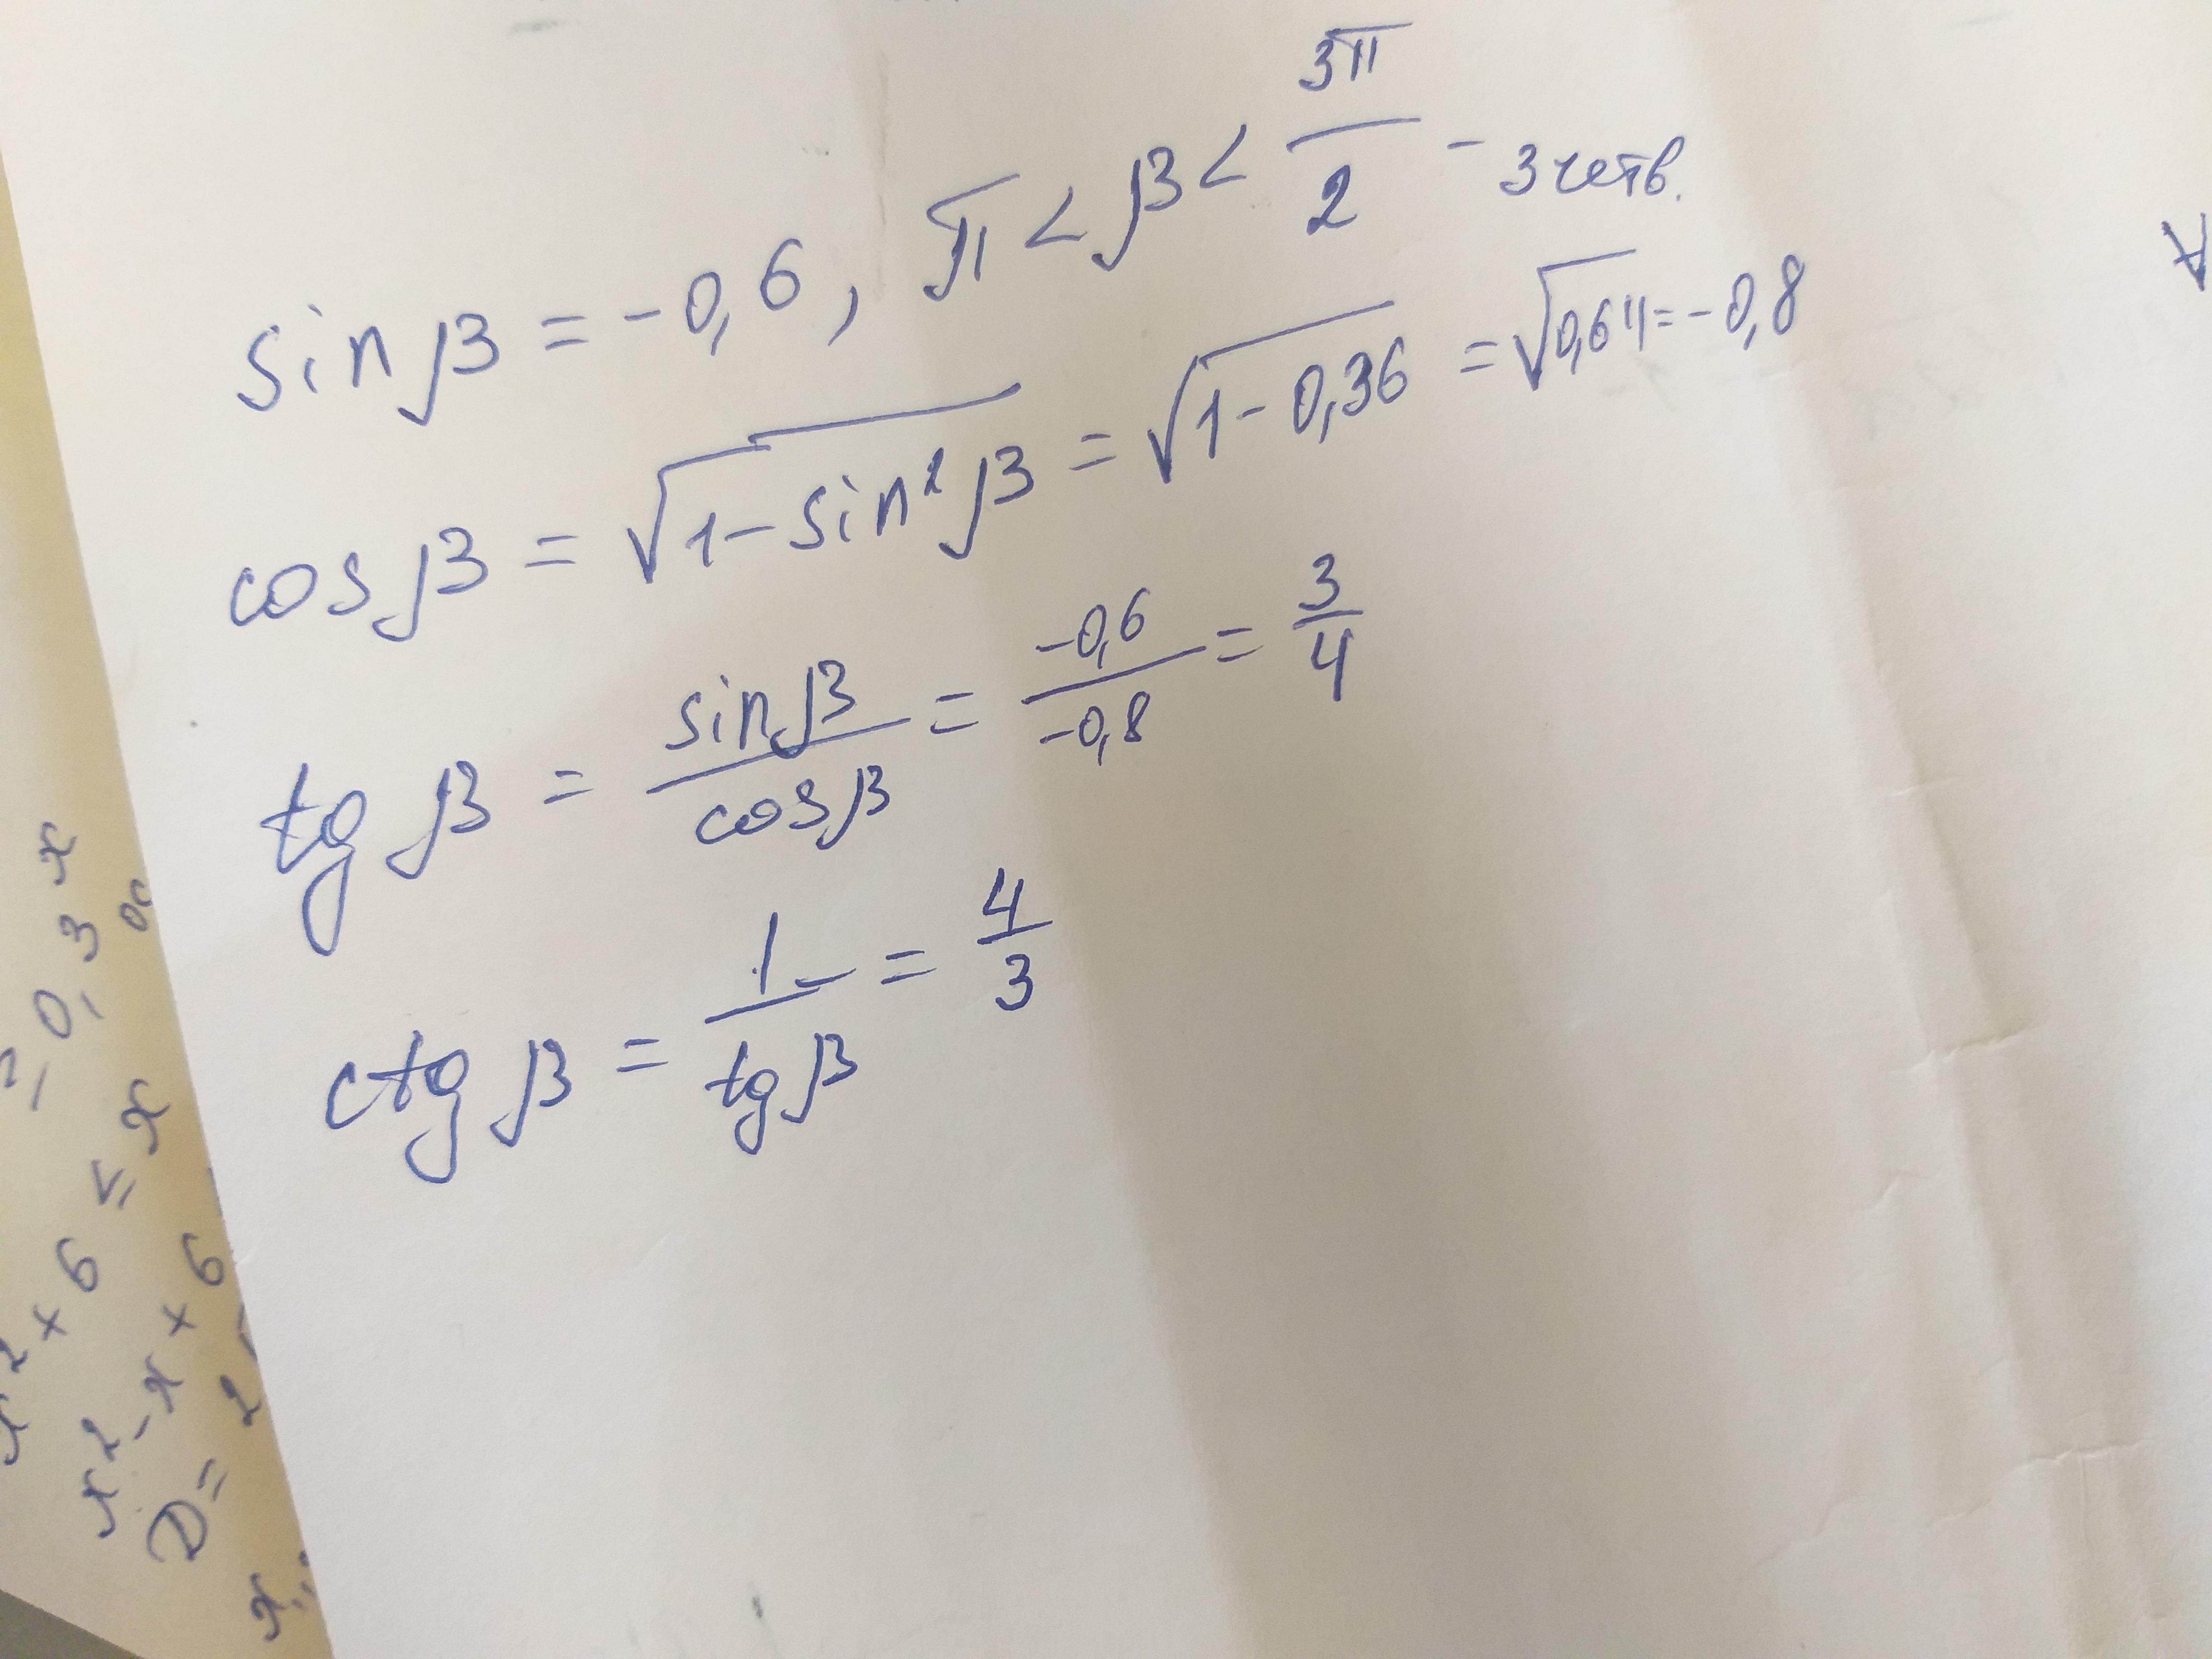 sin β = -0,6, π < β < 3π/2 - 3 четв.
cos β = √(1-sin²β) = √(1-0,36) = √0,64 = -0,8
tg β = sinβ/cosβ = -0,6/-0,8 = 3/4
ctg β = 1/tgβ = 4/3
- 0,3x
x² + 6 ≤ x
x² - x + 6
D = 2